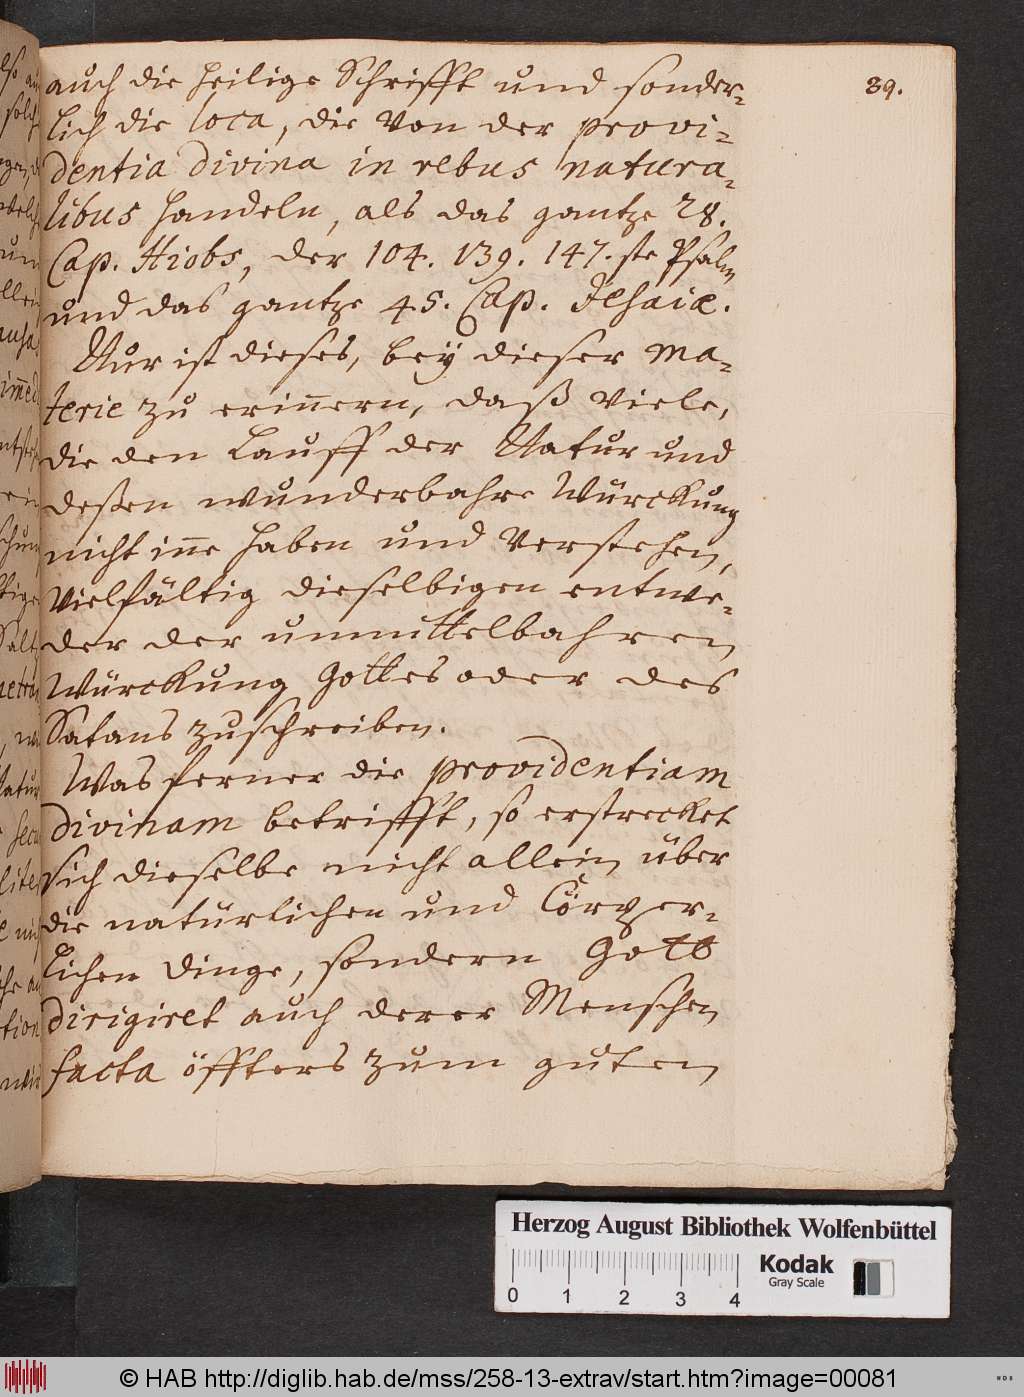 39.
auch die heilige Schrifft und sonder-
lich die loca, die von der provi-
dentia divina in rebus natura-
libus handeln, als das gantze 28.
Cap. Hiobs, der 104. 139. 147.ste Psalm
und das gantze 45. Cap. Jesaiæ.
Nur ist dieses, bey dieser ma-
terie zu erin̄ern, daß viele,
die den Lauff der Natur und
deßen wunderbahre Würckung
nicht in̄e haben und verstehen,
vielfältig dieselbigen entwe-
der der unmittelbahren
Würckung Gottes oder des
Satans zuschreiben.
Was ferner die providentiam
divinam betrifft, so erstrecket
sich dieselbe nicht allein über
die natürlichen und Cörper-
lichen Dinge, sondern Gott
dirigiret auch derer Menschen
facta öffters zum guten
Herzog August Bibliothek Wolfenbüttel
Kodak
Gray Scale
0 1 2 3 4
© HAB http://diglib.hab.de/mss/258-13-extrav/start.htm?image=00081